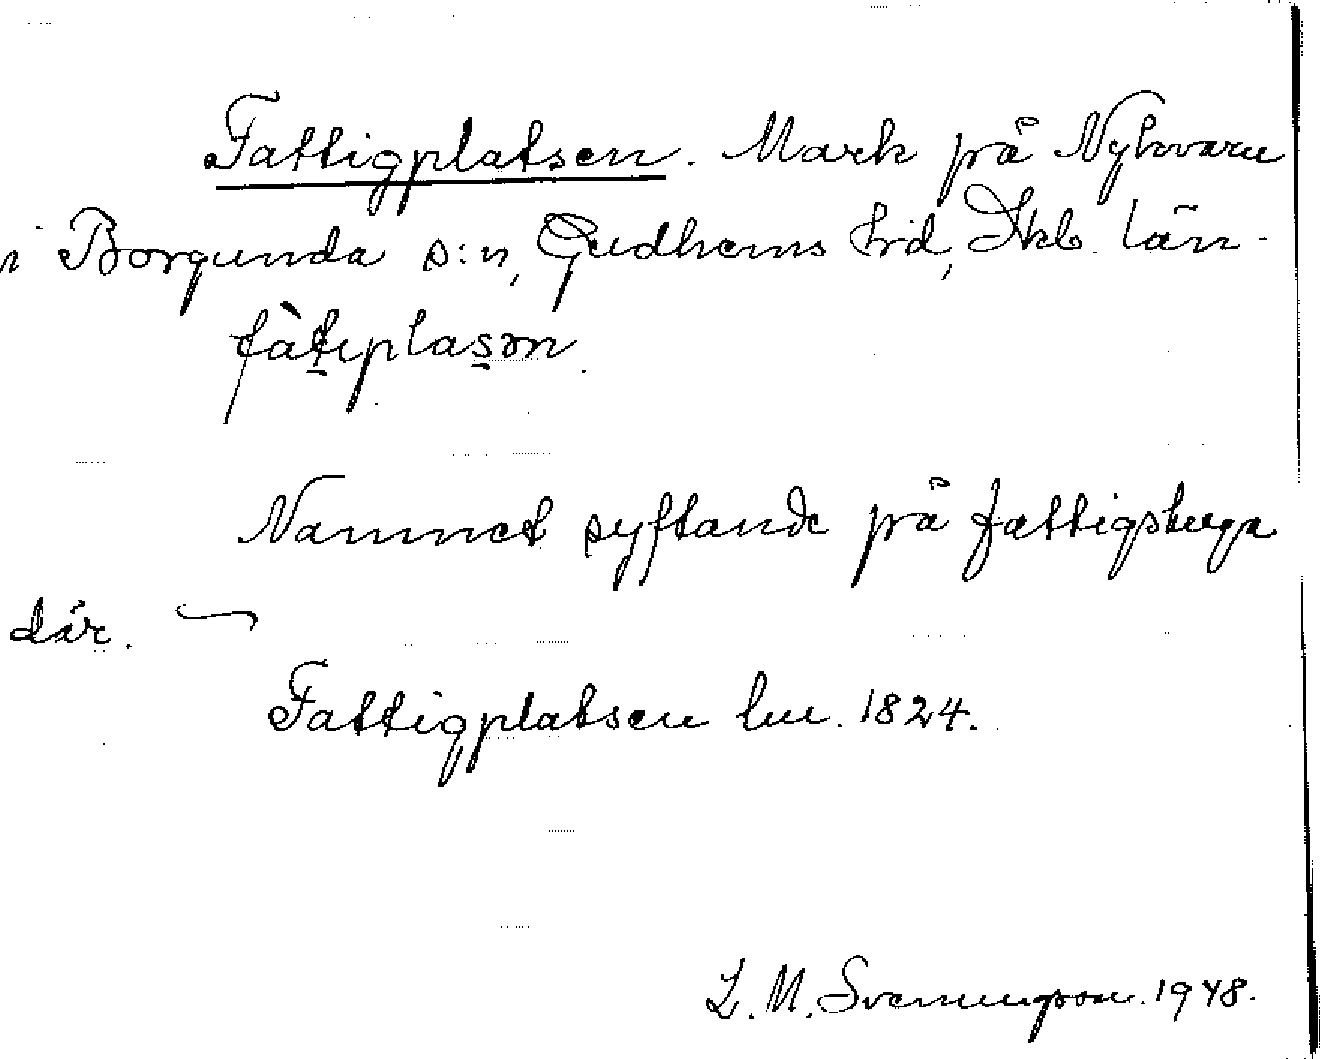 Fattigplatsen. Mark på Nykvarn
i Borgunda s:n, Gudhems hd, Skb. län.
fàtiplasən.
Namnet syftande på fattigstuga
där.
Fattigplatsen lm. 1824.
L. M. Svenungsson. 1948.